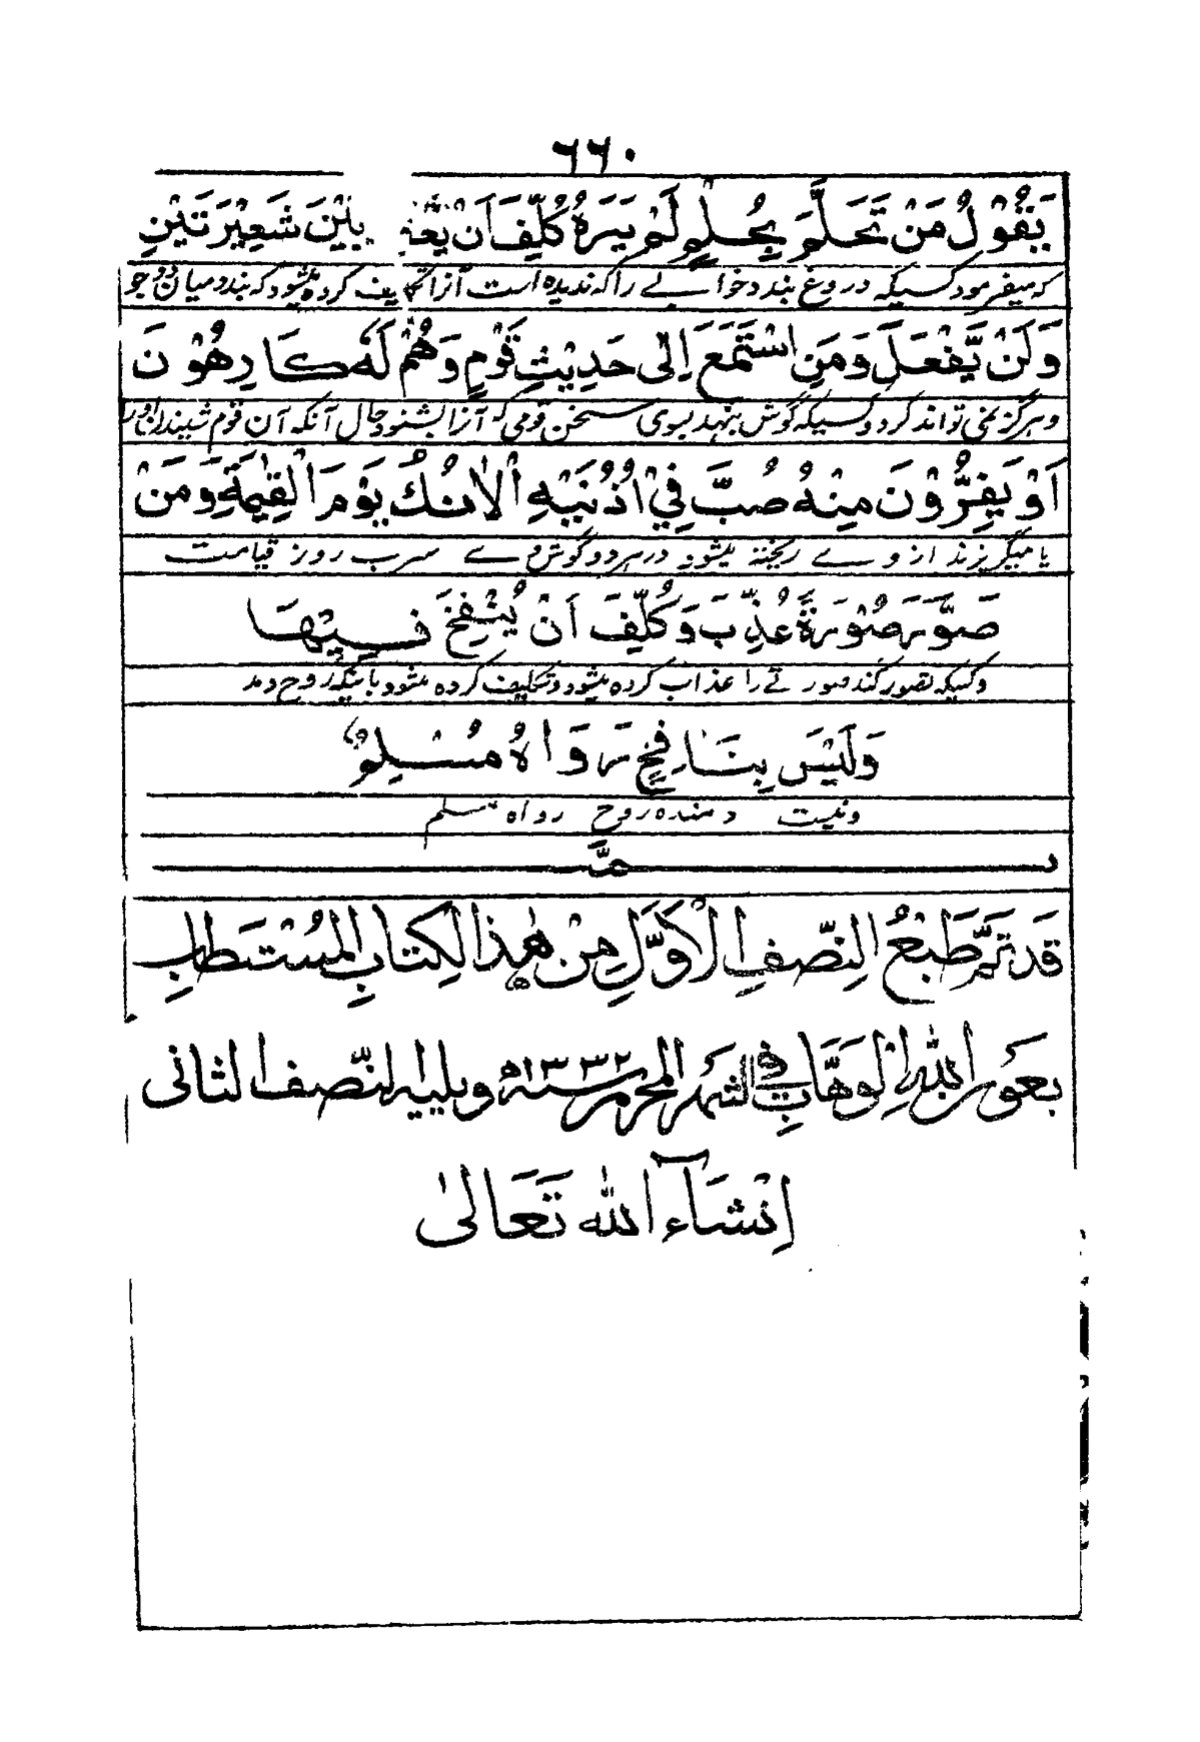 ٦٦٠
يَقُوْلُ مَنْ تَحَلَّمَ بِحُلْمٍ لَمْ يَرَهُ كُلِّفَ اَنْ يَّعْقِدَ بَيْنَ شَعِيْرَتَيْنِ
که میفرمود کسیکه دروغ بندد خوابے را که ندیده است آنرا تکلیف کرده میشود که بندد میان دو جو
وَلَنْ يَّفْعَلَ وَمَنِ اسْتَمَعَ اِلٰى حَدِيْثِ قَوْمٍ وَهُمْ لَهٗ كَارِهُوْنَ
و هرگز نمی تواند کرد و کسیکه گوش بنهد بسوی سخن قومی که آنرا بشنود حال آنکه آن قوم شنیدن او را
اَوْ يَفِرُّوْنَ مِنْهُ صُبَّ فِيْ اُذُنَيْهِ الْاٰنُكُ يَوْمَ الْقِيٰمَةِ وَمَنْ
یا میگریزند از وے ریخته میشود در هر دو گوش وے سرب روز قیامت
صَوَّرَ صُوْرَةً عُذِّبَ وَكُلِّفَ اَنْ يَّنْفُخَ فِيْهَا
و کسیکه تصویر کند صورتے را عذاب کرده میشود و تکلیف کرده میشود باینکه روح دمد
وَلَيْسَ بِنَافِخٍ رَوَاهُ مُسْلِمٌ
و نیست دمنده روح رواه مسلم
تمّت
قَدْ تَمَّ طَبْعُ النِّصْفِ الْاَوَّلِ مِنْ هٰذَا الْكِتَابِ الْمُسْتَطَابِ
بعَون اللهِ الْوَهَّابِ فى الشَهر المحرم سنه ١٣٣٢ه ويليه النّصف الثانى
اِنْشَآءَ الله تَعَالىٰ